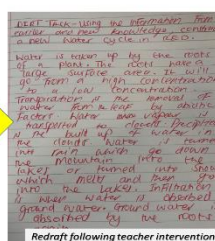 DIRT Task - Using the information from
earlier and new knowledge, construct
a new water cycle in RED.
Water is taken up by the roots
of a plant. The roots have a
large surface area. It will
go from a high concentration
to a low concentration.
Transpiration is the removal of
water from a leaf by
Factors. Water and vapour
transported to clouds. Precipitation
is the build up of water in
the clouds. Water is turned
into rain which go down
the mountain into the
lakes or turned into snow
which melt and then go
into the lakes. Infiltration
is when water is absorbed
ground water. Ground water
absorbed by the roots
again
Redraft following teacher intervention